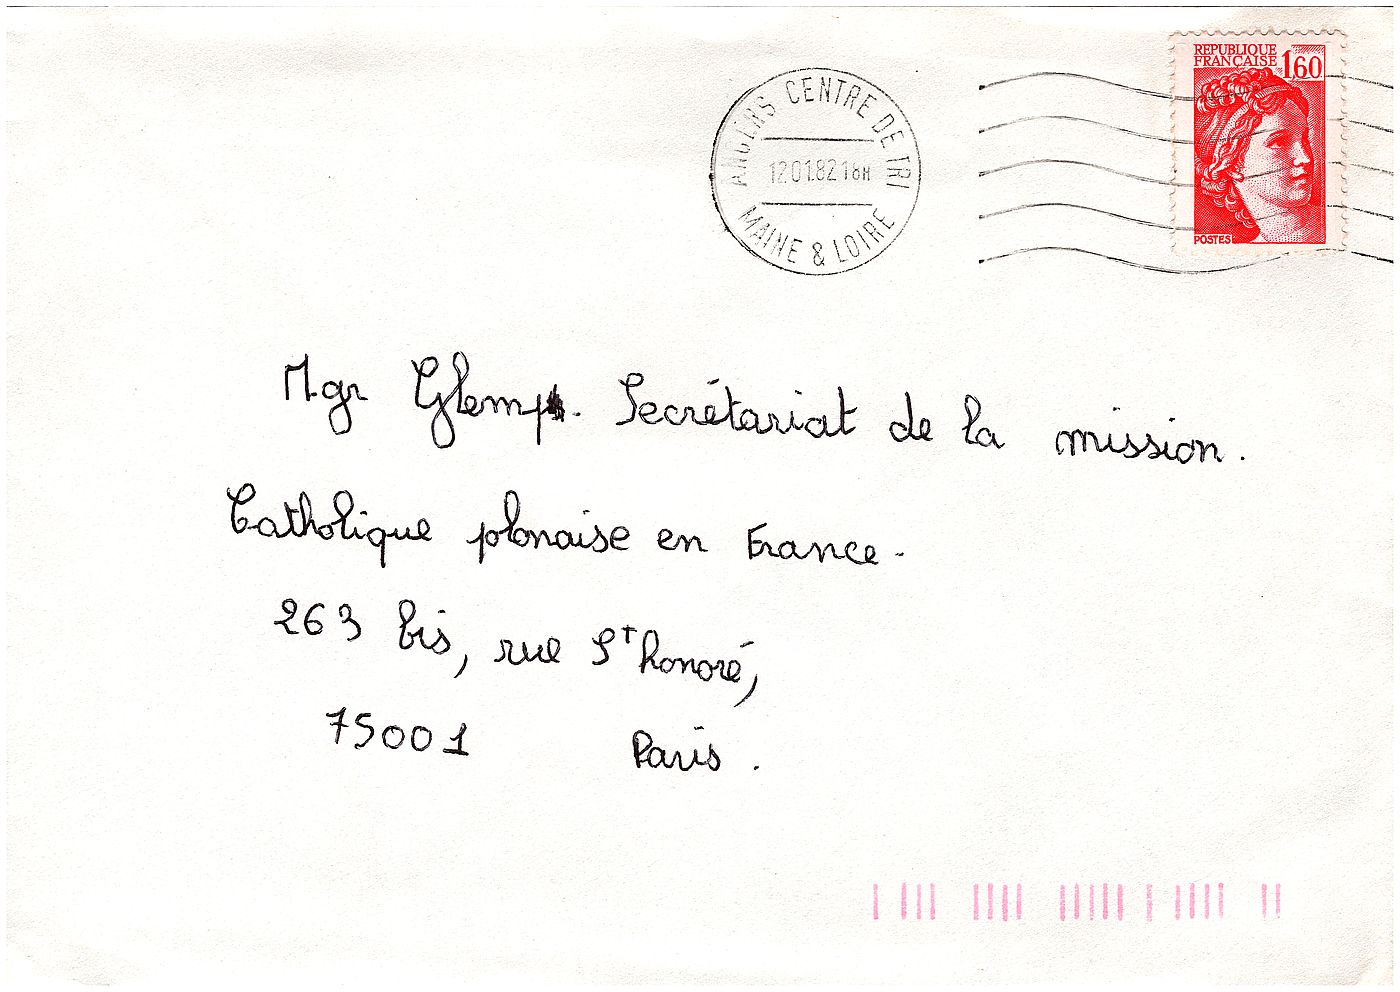 REPUBLIQUE
FRANÇAISE 1,60
POSTES
ANGERS CENTRE DE TRI
12.01.82 18H
MAINE & LOIRE
Mgr Glemp. Secrétariat de la mission.
Catholique polonaise en France.
263 bis, rue St honoré,
75001 Paris.